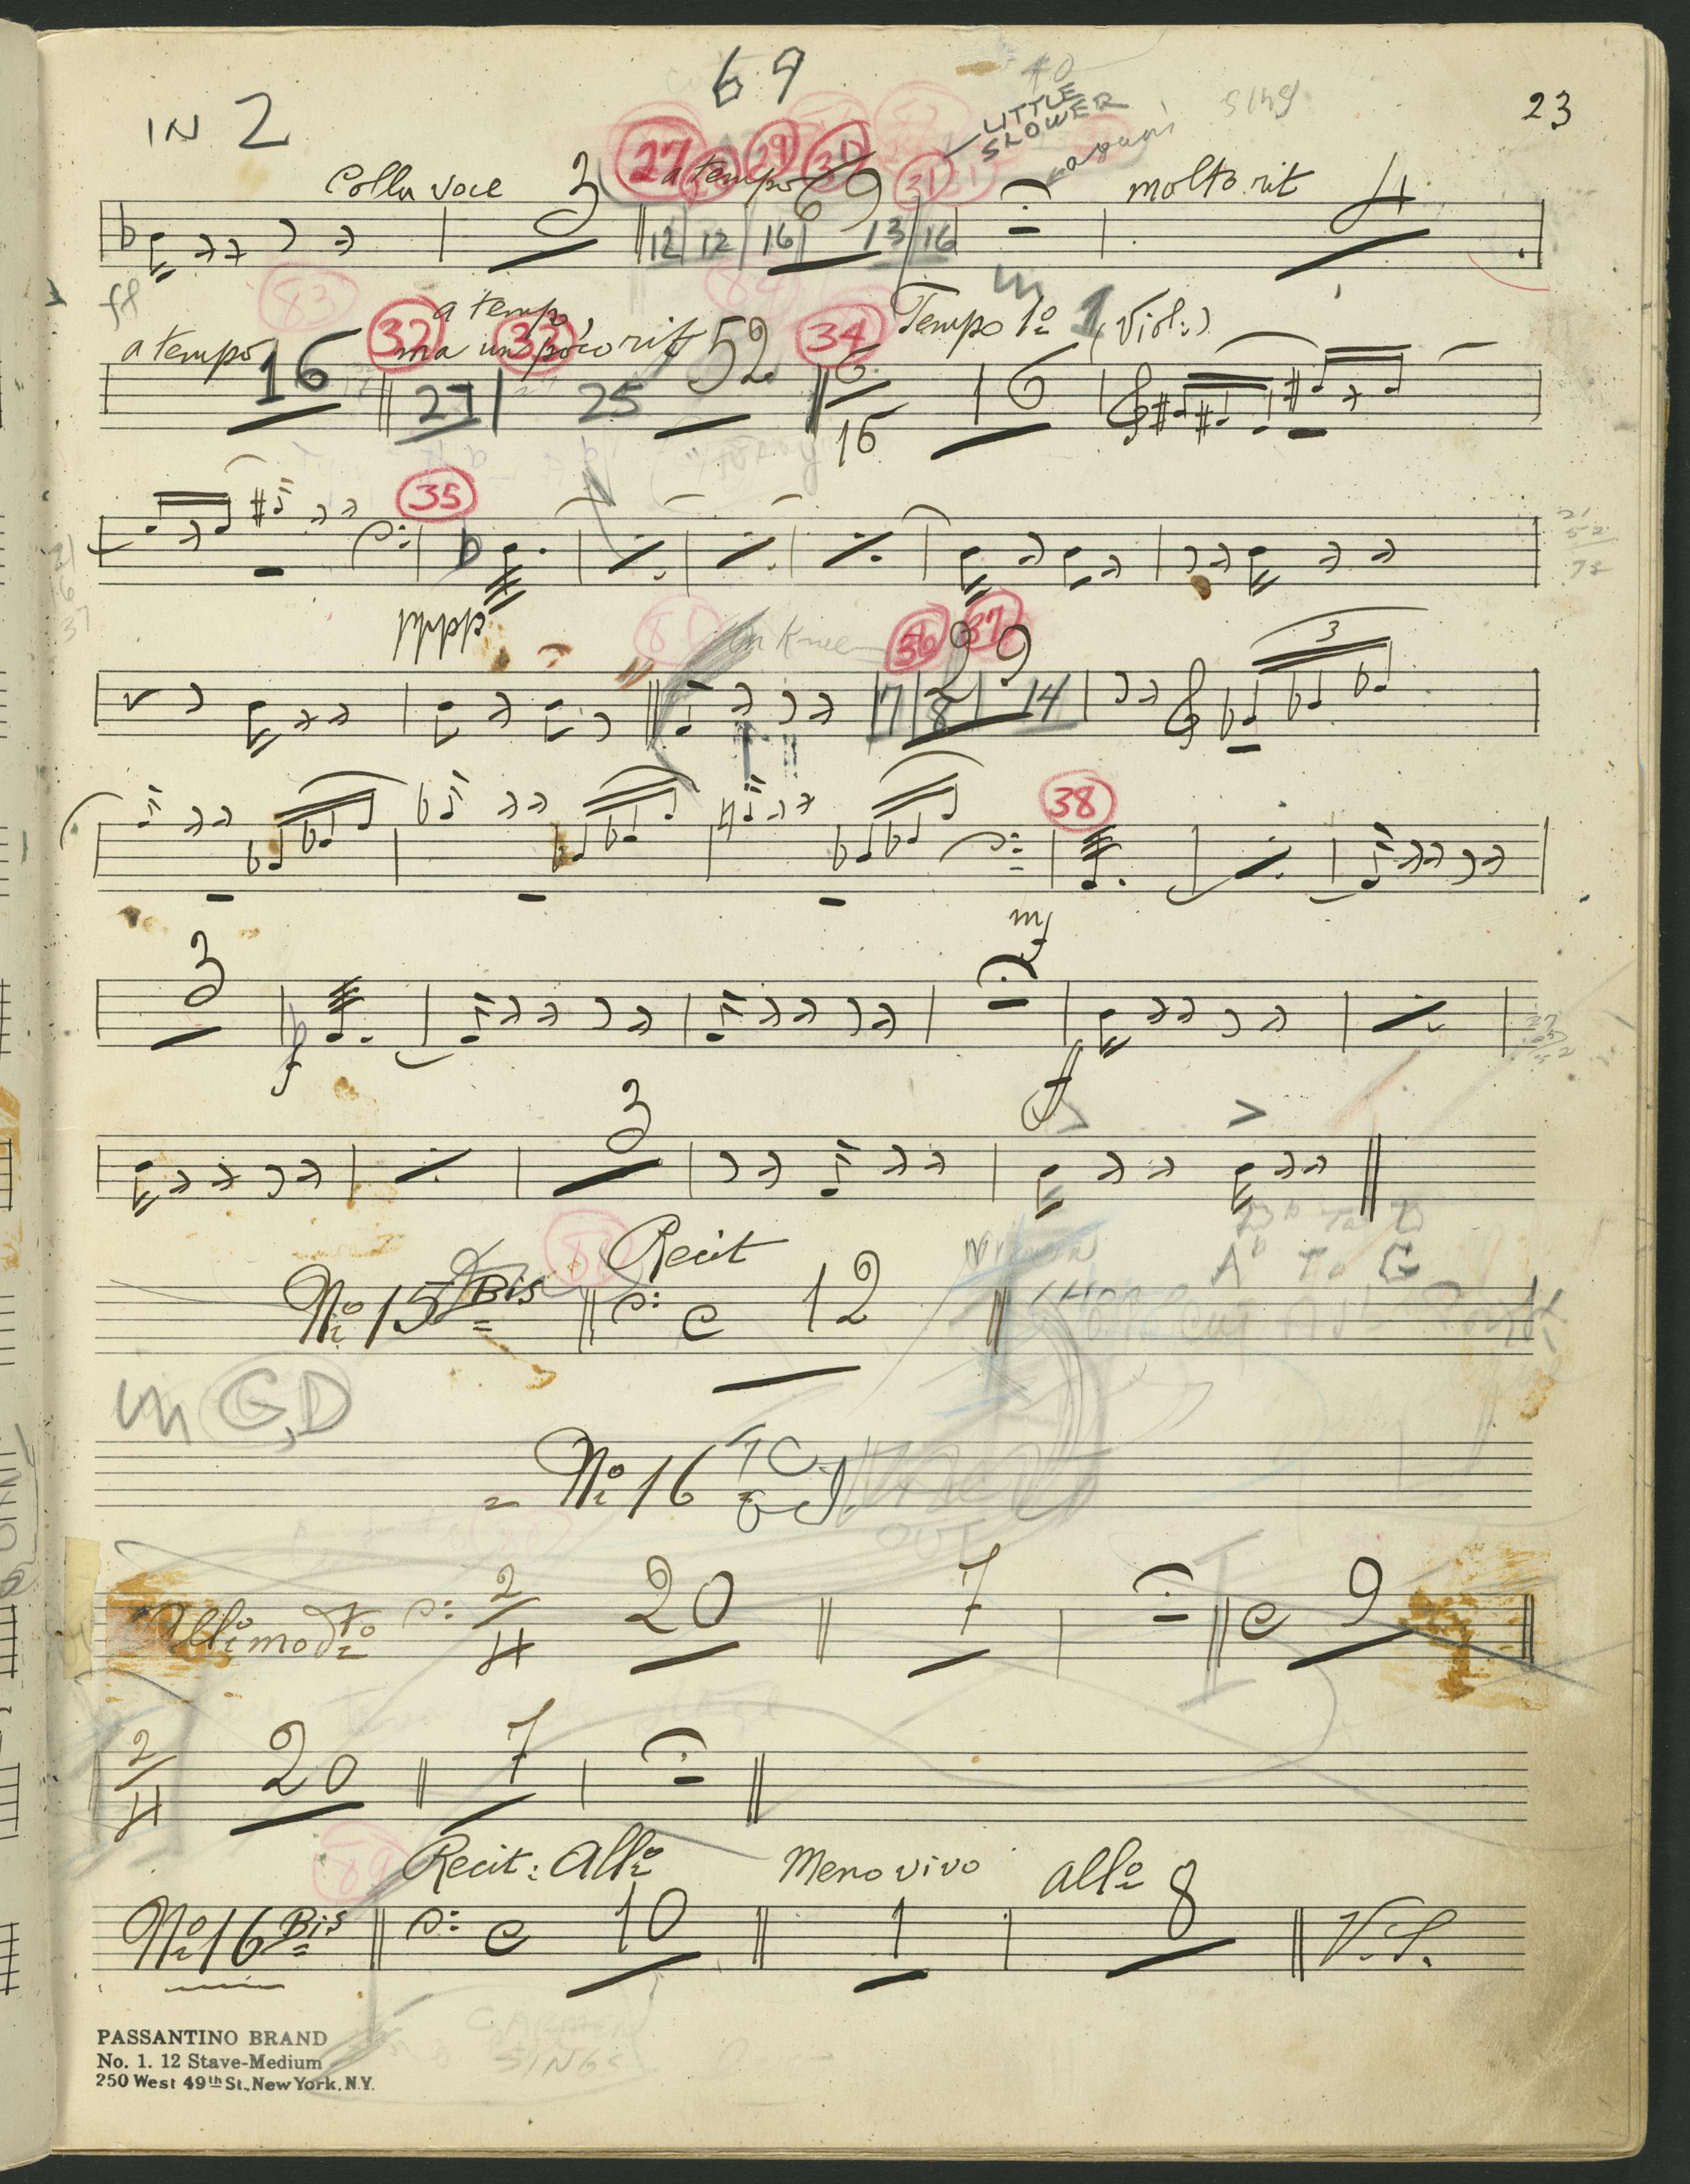 69
IN 2
LITTLE
SLOWER
sing
23
Colla voce 3 27 a tempo 69 29 31 31 molto rit 4
12 12 16 13 16
ff
a tempo 16 32 a tempo, 33 52 34 Tempo 1º 1 (Viol:)
ma un poco rit
27 25 6 16
16
35
21
52
78
pppp
on Knee 36 37
29 3
17 8 14
38
mf
3
f
ff
3
Nº 15 Bis Recit 12
Ab To G
in G, D
Nº 16
OUT
Allº modtº 2/4 20 7 9
2/4 20 7
89 Recit: Allº Meno vivo allº
Nº 16 Bis 10 1 8 V.S.
CARMEN
SINGS
PASSANTINO BRAND
No. 1. 12 Stave-Medium
250 West 49th St., New York, N.Y.